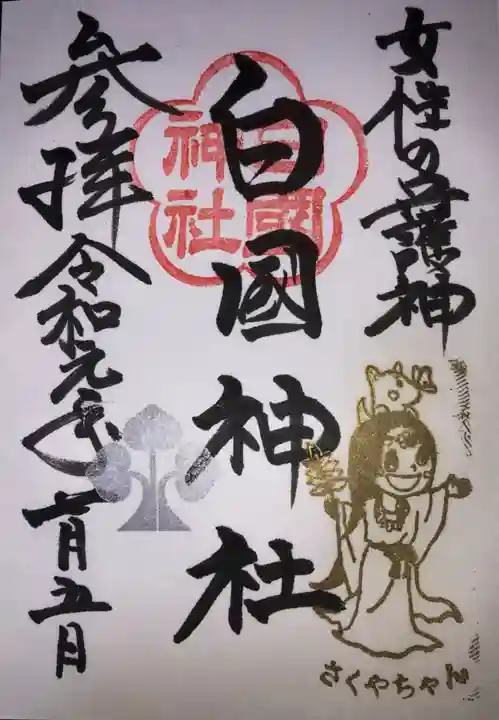 女性の守護神
白國神社
白國
神社
参拝 令和元年 七月五日
さくやちゃん